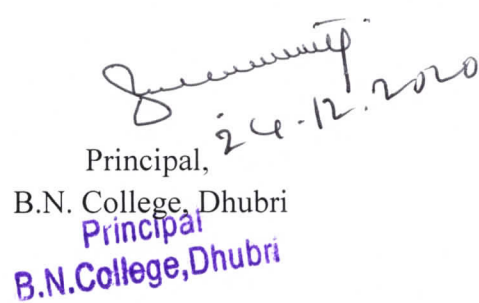 24.12.2020
Principal,
B.N. College, Dhubri
Principal
B.N.College,Dhubri